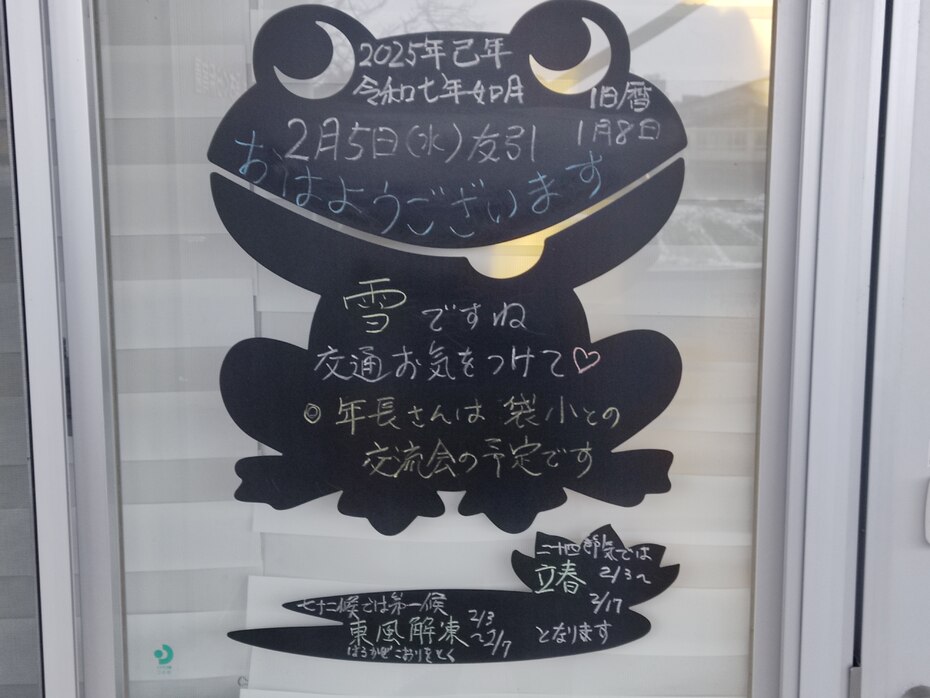 2025年己年
令和七年如月
旧暦
1月8日
2月5日(水)友引
おはようございます
雪ですね
交通お気をつけて♡
◎年長さんは袋小との
交流会の予定です
二十四節気では
立春 2/3～
2/17
となります
七十二候では第一候
東風解凍 2/3～2/7
はるかぜこおりをとく